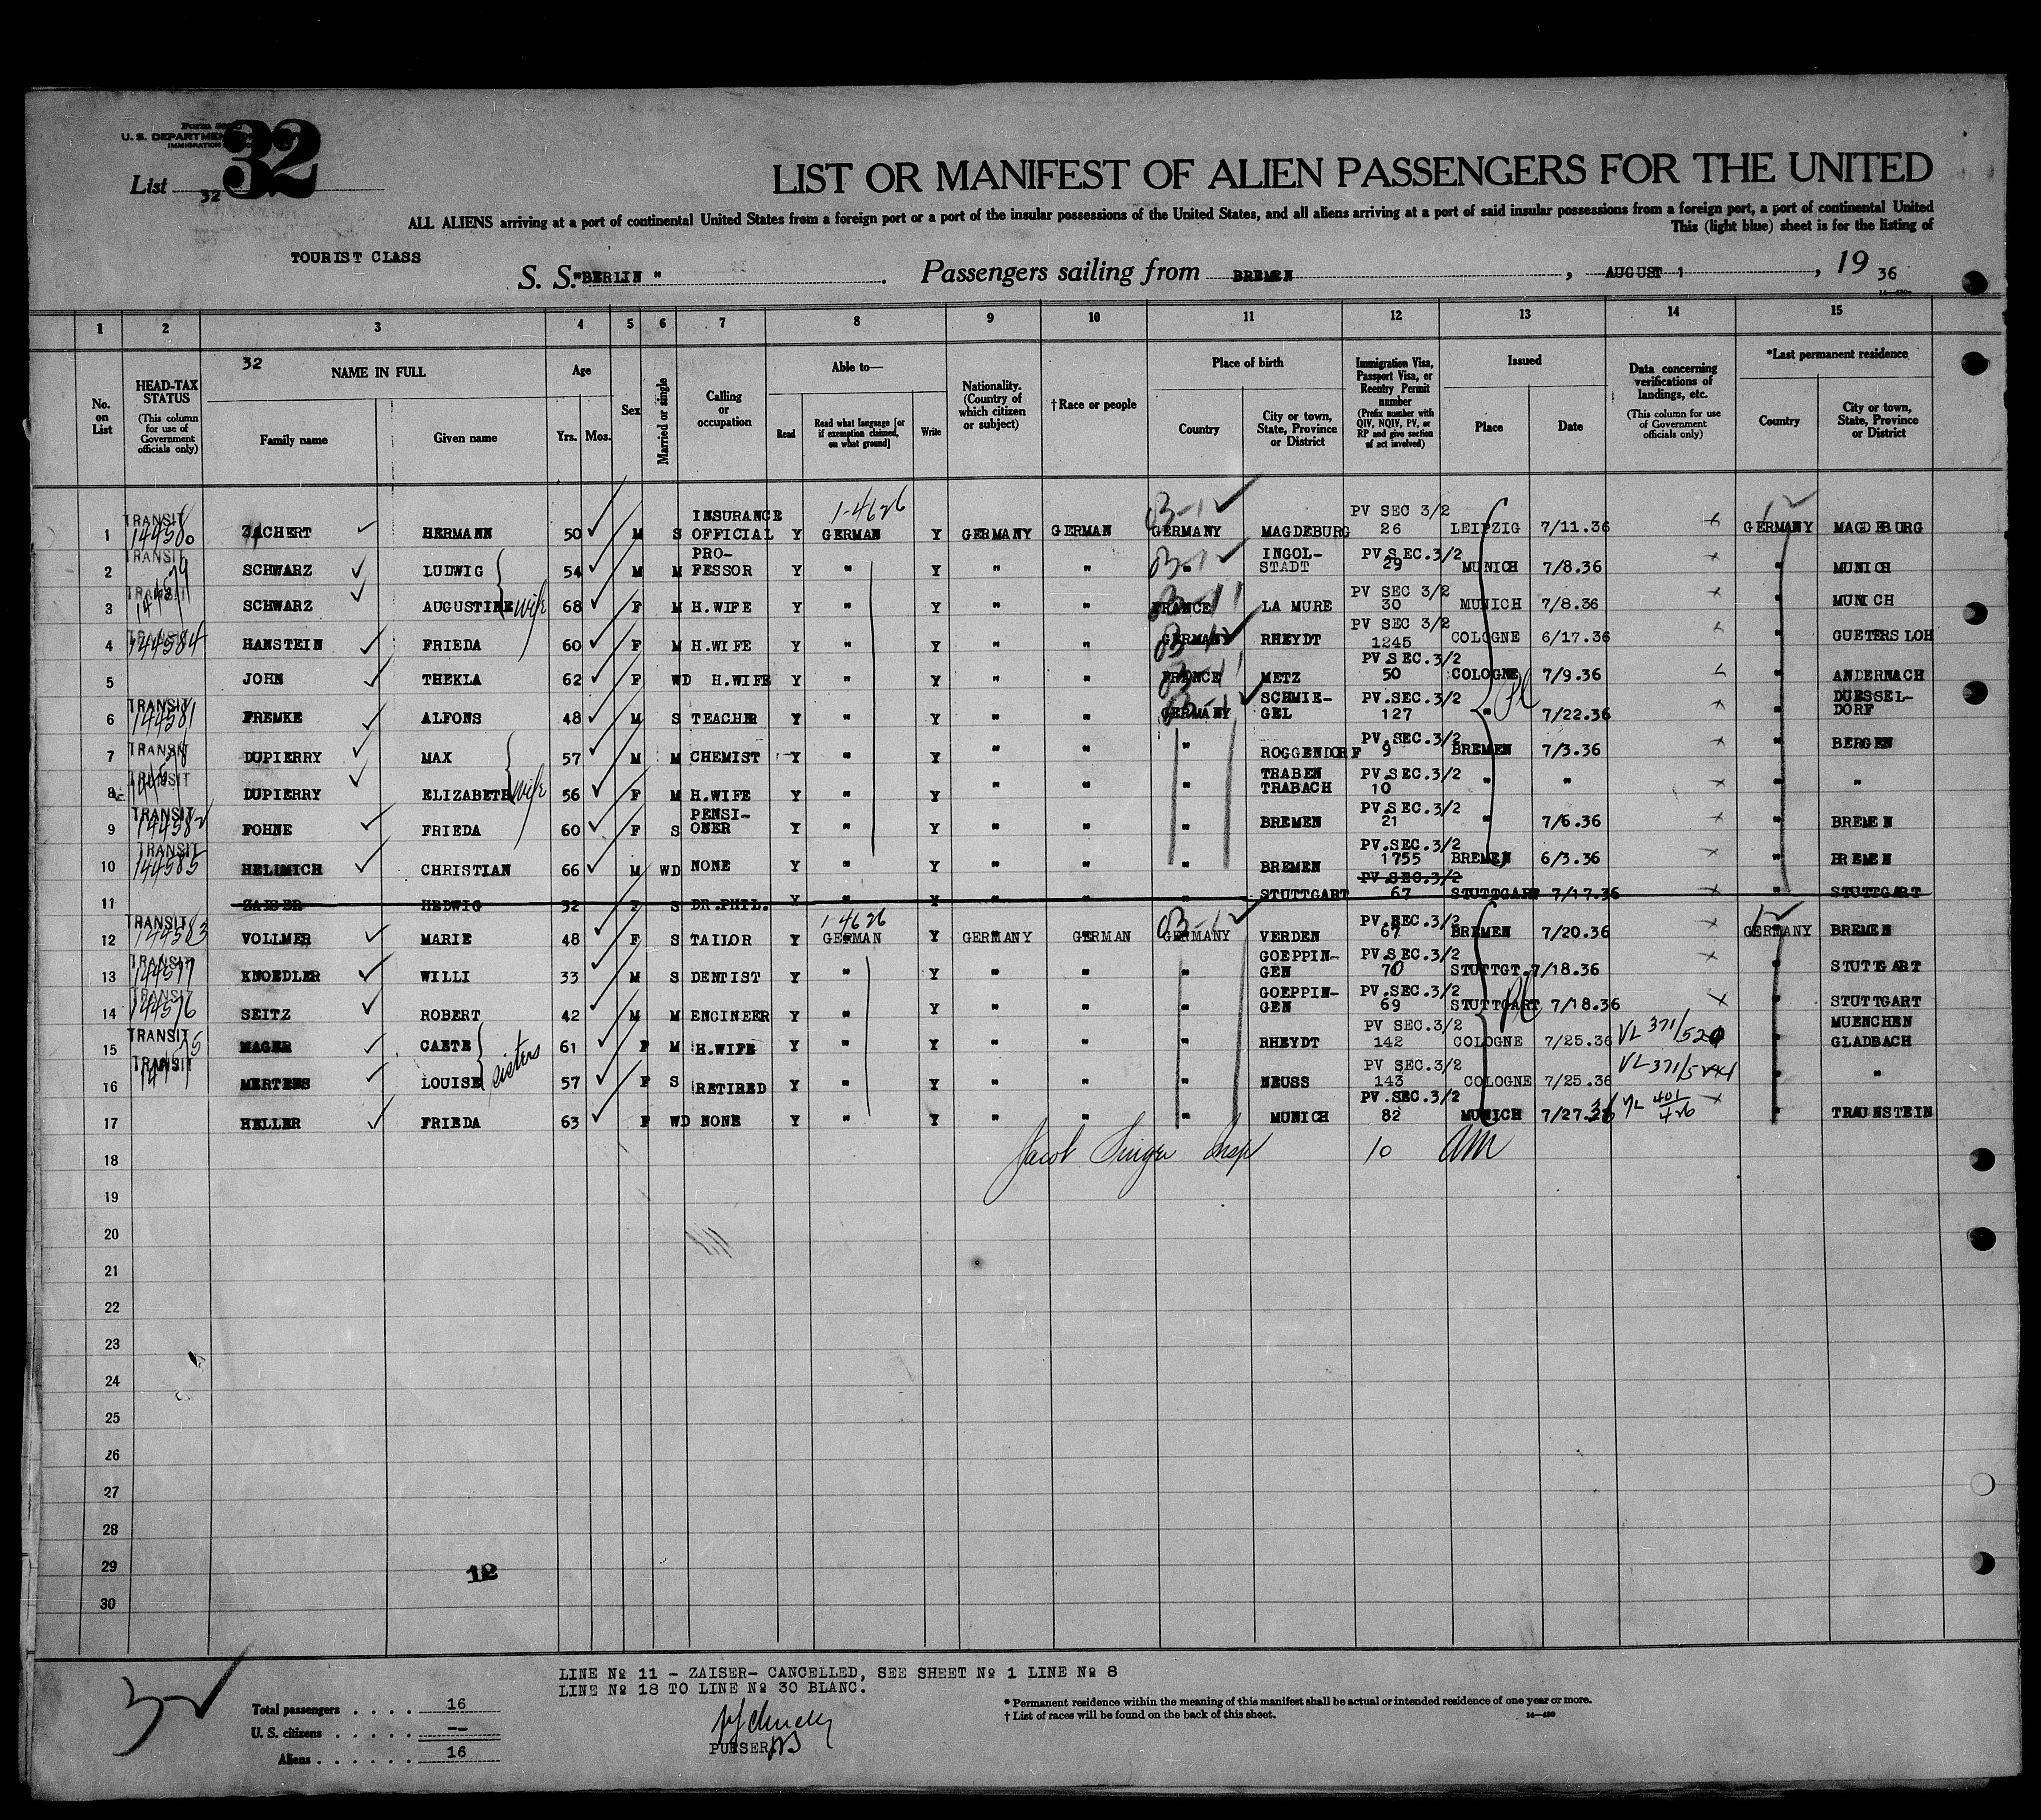 Form 500
U. S. DEPARTMENT OF
IMMIGRATION
List 32
32
LIST OR MANIFEST OF ALIEN PASSENGERS FOR THE UNITED
ALL ALIENS arriving at a port of continental United States from a foreign port or a port of the insular possessions of the United States, and all aliens arriving at a port of said insular possessions from a foreign port, a port of continental United
This (light blue) sheet is for the listing of
TOURIST CLASS
S. S. "BERLIN " . Passengers sailing from BREMEN , AUGUST 1 , 19 36
1 2 3 4 5 6 7 8 9 10 11 12 13 14 15
No. on List
HEAD-TAX STATUS
(This column for use of Government officials only)
32
NAME IN FULL
Family name Given name
Age
Yrs. Mos.
Sex
Married or single
Calling or occupation
Able to—
Read Read what language [or if exemption claimed, on what ground] Write
Nationality. (Country of which citizen or subject)
†Race or people
Place of birth
Country City or town, State, Province or District
Immigration Visa, Passport Visa, or Reentry Permit number
(Prefix number with QIV, NQIV, PV, or RP and give section of act involved)
Issued
Place Date
Data concerning verifications of landings, etc.
(This column for use of Government officials only)
*Last permanent residence
Country City or town, State, Province or District
1-4626
1 TRANSIT 144580 ZACHERT HERMANN 50 M S INSURANCE OFFICIAL Y GERMAN Y GERMANY GERMAN GERMANY MAGDEBURG PV SEC 3/2 26 LEIPZIG 7/11.36 GERMANY MAGDEBURG
2 TRANSIT 144579 SCHWARZ LUDWIG 54 M M PRO- FESSOR Y " Y " " " INGOL- STADT PV SEC.3/2 29 MUNICH 7/8.36 " MUNICH
3 TRANSIT SCHWARZ AUGUSTINE wife 68 F M H.WIFE Y " Y " " FRANCE LA MURE PV SEC 3/2 30 MUNICH 7/8.36 " MUNICH
4 TRANSIT 144584 HANSTEIN FRIEDA 60 F M H.WIFE Y " Y " " GERMANY RHEYDT PV SEC 3/2 1245 COLOGNE 6/17.36 " GUETERSLOH
5 JOHN THEKLA 62 F WD H.WIFE Y " Y " " FRANCE METZ PV SEC.3/2 50 COLOGNE 7/9.36 " ANDERNACH
6 TRANSIT 144581 FREMKE ALFONS 48 M S TEACHER Y " Y " " GERMANY SCHMIE- GEL PV.SEC.3/2 127 " 7/22.36 " DUESSEL- DORF
7 TRANSIT DUPIERRY MAX 57 M M CHEMIST Y " Y " " " ROGGENDORF PV.SEC.3/2 9 BREMEN 7/3.36 " BERGEN
8 TRANSIT DUPIERRY ELIZABETH wife 56 F M H.WIFE Y " Y " " " TRABEN TRABACH PV.SEC.3/2 10 " " " "
9 TRANSIT 144582 FOHNE FRIEDA 60 F S PENSI- ONER Y " Y " " " BREMEN PV.SEC.3/2 21 " 7/6.36 " BREMEN
10 TRANSIT 144585 HELIMICH CHRISTIAN 66 M WD NONE Y " Y " " " BREMEN PV.SEC.3/2 1755 BREMEN 6/3.36 " BREMEN
11 ZAISER HEDWIG 32 F S DR.PHIL. Y " Y " " " STUTTGART PV.SEC.3/2 67 STUTTGART 7/17.36 " STUTTGART
1-4626
12 TRANSIT 144583 VOLLMER MARIE 48 F S TAILOR Y GERMAN Y GERMANY GERMAN GERMANY VERDEN PV.SEC.3/2 67 BREMEN 7/20.36 GERMANY BREMEN
13 TRANSIT 144577 KNOEDLER WILLI 33 M S DENTIST Y " Y " " " GOEPPIN- GEN PV.SEC.3/2 70 STUTTGT.7/18.36 " STUTTGART
14 TRANSIT 144576 SEITZ ROBERT 42 M M ENGINEER Y " Y " " " GOEPPIN- GEN PV.SEC.3/2 69 STUTTGART 7/18.36 " STUTTGART
15 TRANSIT MAGER CAETE 61 F M H.WIFE Y " Y " " " RHEYDT PV SEC.3/2 142 COLOGNE 7/25.36 VL 371/520 " MUENCHEN GLADBACH
sisters
16 TRANSIT MERTENS LOUISE 57 F S RETIRED Y " Y " " " NEUSS PV SEC.3/2 143 COLOGNE 7/25.36 " "
17 HELLER FRIEDA 63 F WD NONE Y " Y " " " MUNICH PV.SEC.3/2 82 MUNICH 7/27.36 VL 401/426 " TRAUNSTEIN
18 Jacob Singer Insp 10 am
19
20
21
22
23
24
25
26
27
28
29
12
30
LINE № 11 - ZAISER- CANCELLED, SEE SHEET № 1 LINE № 8
LINE № 18 TO LINE № 30 BLANC.
Total passengers . . . . 16
U. S. citizens . . . . . --
Aliens . . . . . . 16
PURSER
* Permanent residence within the meaning of this manifest shall be actual or intended residence of one year or more.
† List of races will be found on the back of this sheet.
14—430